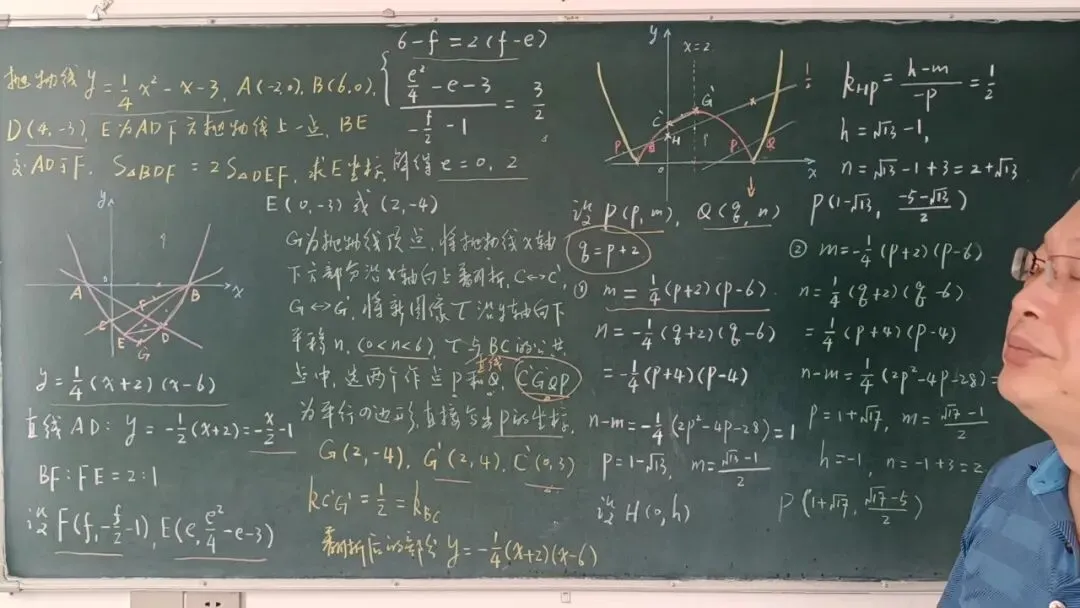 抛物线 y = 1/4 x² - x - 3, A(-2,0), B(6,0),
D(4,-3), E为AD下方抛物线上一点, BE
交AD于F. S△BDF = 2S△DEF, 求E坐标.
y
A
B
x
0
C
E
F
D
G
y = 1/4 (x+2)(x-6)
直线AD: y = -1/2 (x+2) = -x/2 - 1
BF:FE = 2:1
记F(f, -f/2 - 1), E(e, e²/4 - e - 3)
6-f = 2(f-e)
(e²/4 - e - 3)/(-f/2 - 1) = 3/2
解得 e = 0, 2
E(0,-3)或(2,-4)
G为抛物线顶点, 将抛物线x轴
下方部分沿x轴向上翻折, C↔C',
G↔G', 将新图像T沿y轴向下
平移n, (0<n<6), T与BC的公共
直线
点中, 选两个作点P和Q, C'G'QP
为平行四边形, 直接写出P的坐标.
G(2,-4), G'(2,4), C'(0,3)
kC'G' = 1/2 = kBC
翻折后的部分 y = -1/4 (x+2)(x-6)
y
x=2
G'
C'
H
P
Q
P
Q
0
x
记P(p,m), Q(q,n)
q = p+2
① m = 1/4 (p+2)(p-6)
n = -1/4 (q+2)(q-6)
= -1/4 (p+4)(p-4)
n-m = -1/4 (2p²-4p-28) = 1
p = 1-√13, m = (√13-1)/2
记H(0,h)
kHP = (h-m)/(-p) = 1/2
h = √13 - 1,
n = √13 - 1 + 3 = 2+√13
P(1-√13, (-5-√13)/2)
② m = -1/4 (p+2)(p-6)
n = 1/4 (q+2)(q-6)
= 1/4 (p+4)(p-4)
n-m = 1/4 (2p²-4p-28) =
p = 1+√17, m = (√17-1)/2
h = -1, n = -1+3 = 2
P(1+√17, (√17-5)/2)